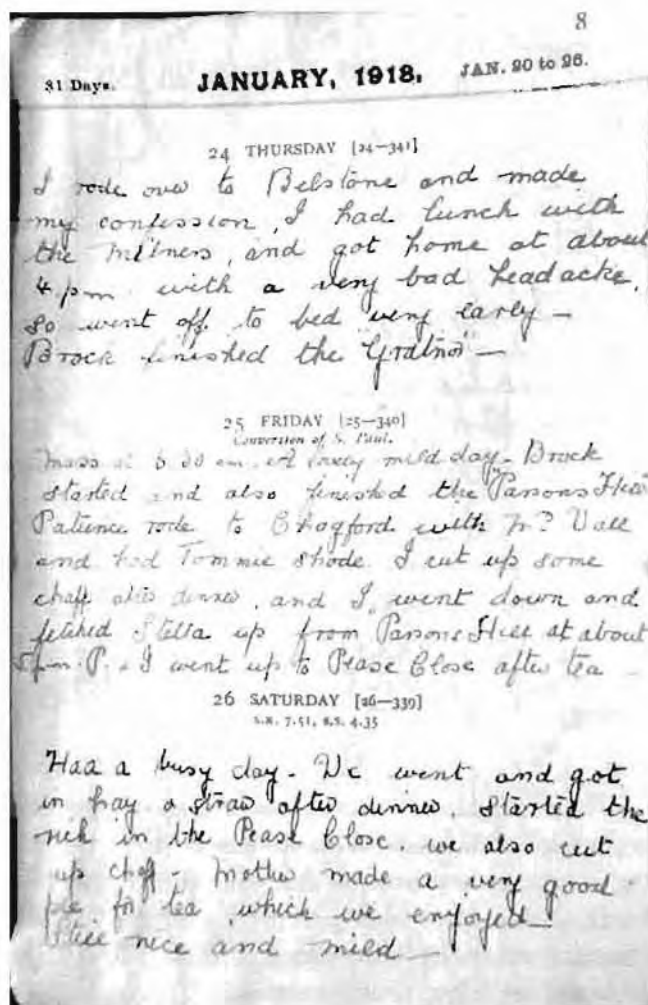 8
31 Days. JANUARY, 1918. JAN. 20 to 26.
24 THURSDAY [24—341]
I rode over to Belstone and made
my confession, I had lunch with
the Milners, and got home at about
4 pm with a very bad headache,
so went off to bed very early —
Brock finished the "Gratnor" —
25 FRIDAY [25—340]
Conversion of S. Paul.
Mass at 6 30 am. A lovely mild day - Brock
started and also finished the "Parsons Hill"
Patience rode to Chagford with Mr Vall
and had Tommie shode. I cut up some
chaff after dinner, and I went down and
fetched Stella up from Parsons Hill at about
5 pm. P. & I went up to Pease Close after tea —
26 SATURDAY [26—339]
S.R. 7.51, S.S. 4.35
Had a busy day - We went and got
in hay & straw after dinner. Started the
rick in the Pease Close. we also cut
up chaff - Mother made a very good
pie for tea which we enjoyed —
Still nice and mild —